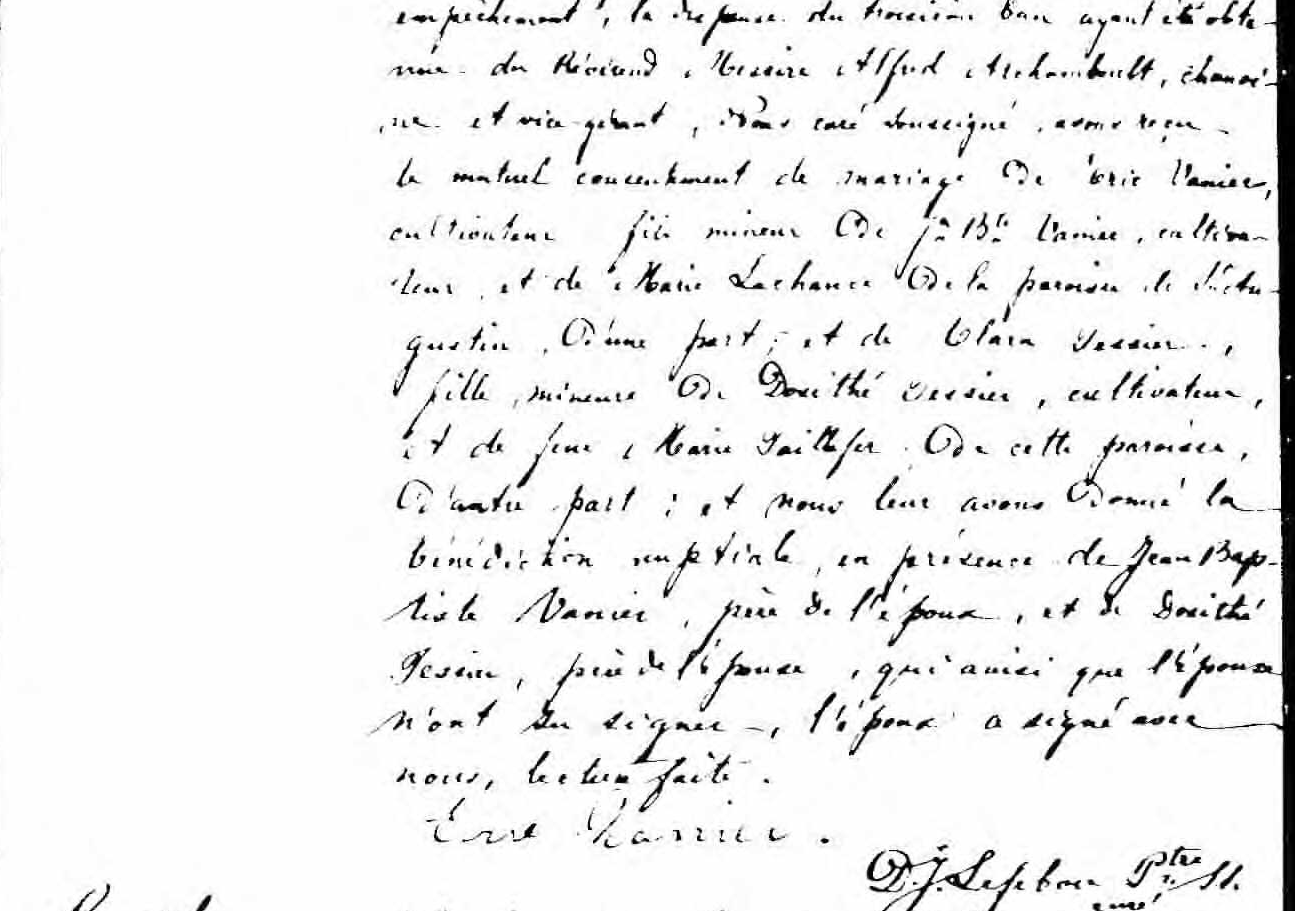 empêchement, la dispense du troisième ban ayant été obte-
nue du Révérend Messire Alfred Archambault, chanoi-
ne et vice-gérant, Nous curé soussigné, avons reçu
le mutuel consentement de mariage de Éric Vanier,
cultivateur fils mineur de Jn Bte Vanier, cultiva-
teur, et de Marie Lachance de la paroisse de St Au-
gustin, d'une part; et de Clara Tessier,
fille mineure de Dosithé Tessier, cultivateur,
et de feue Marie Taillefer de cette paroisse,
d'autre part; et nous leur avons donné la
bénédiction nuptiale, en présence de Jean Bap-
tiste Vanier, père de l'époux, et de Dosithé
Tessier, père de l'épouse, qui ainsi que l'épouse
n'ont su signer -, l'époux a signé avec
nous, lecture faite.
Vanier.
D. J. Lefebvre Ptre
curé